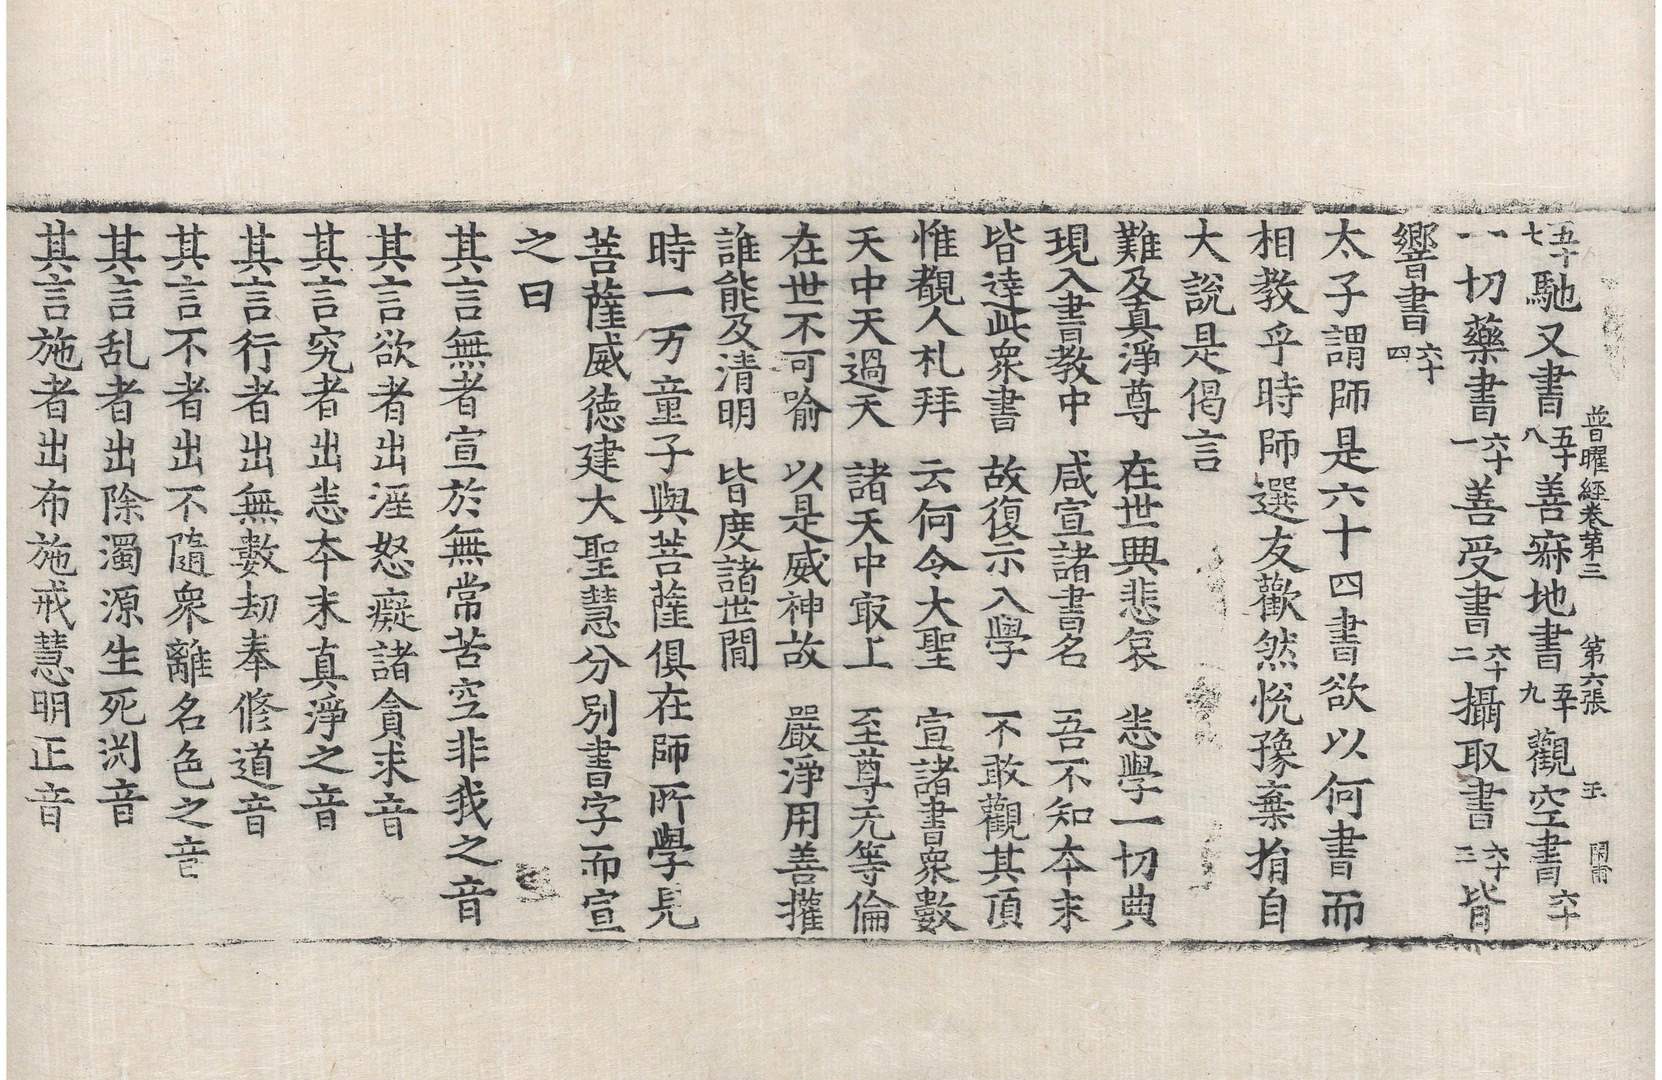 普曜經卷第三 第六張 玉
五十七馳又書五十八善寐地書五十九觀空書六十
一切藥書六十一善受書六十二攝取書六十三皆
響書六十四
太子謂師是六十四書欲以何書而
相教乎時師選友歡然悅豫棄捐自
大說是偈言
難及真淨尊 在世興悲哀 悉學一切典
現入書教中 咸宣諸書名 吾不知本末
皆達此衆書 故復示入學 不敢觀其頂
惟覩人礼拜 云何令大聖 宣諸書衆數
天中天過天 諸天中㝡上 至尊无等倫
在世不可喻 以是威神故 嚴淨用善攉
誰能及清明 皆度諸世間
時一万童子與菩薩俱在師所學見
菩薩威德建大聖慧分別書字而宣
之曰
其言無者宣於無常苦空非我之音
其言欲者出淫怒癡諸貪求音
其言究者出悉本末真淨之音
其言行者出無數劫奉修道音
其言不者出不隨衆離名色之音
其言乱者出除濁源生死渕音
其言施者出布施戒慧明正音